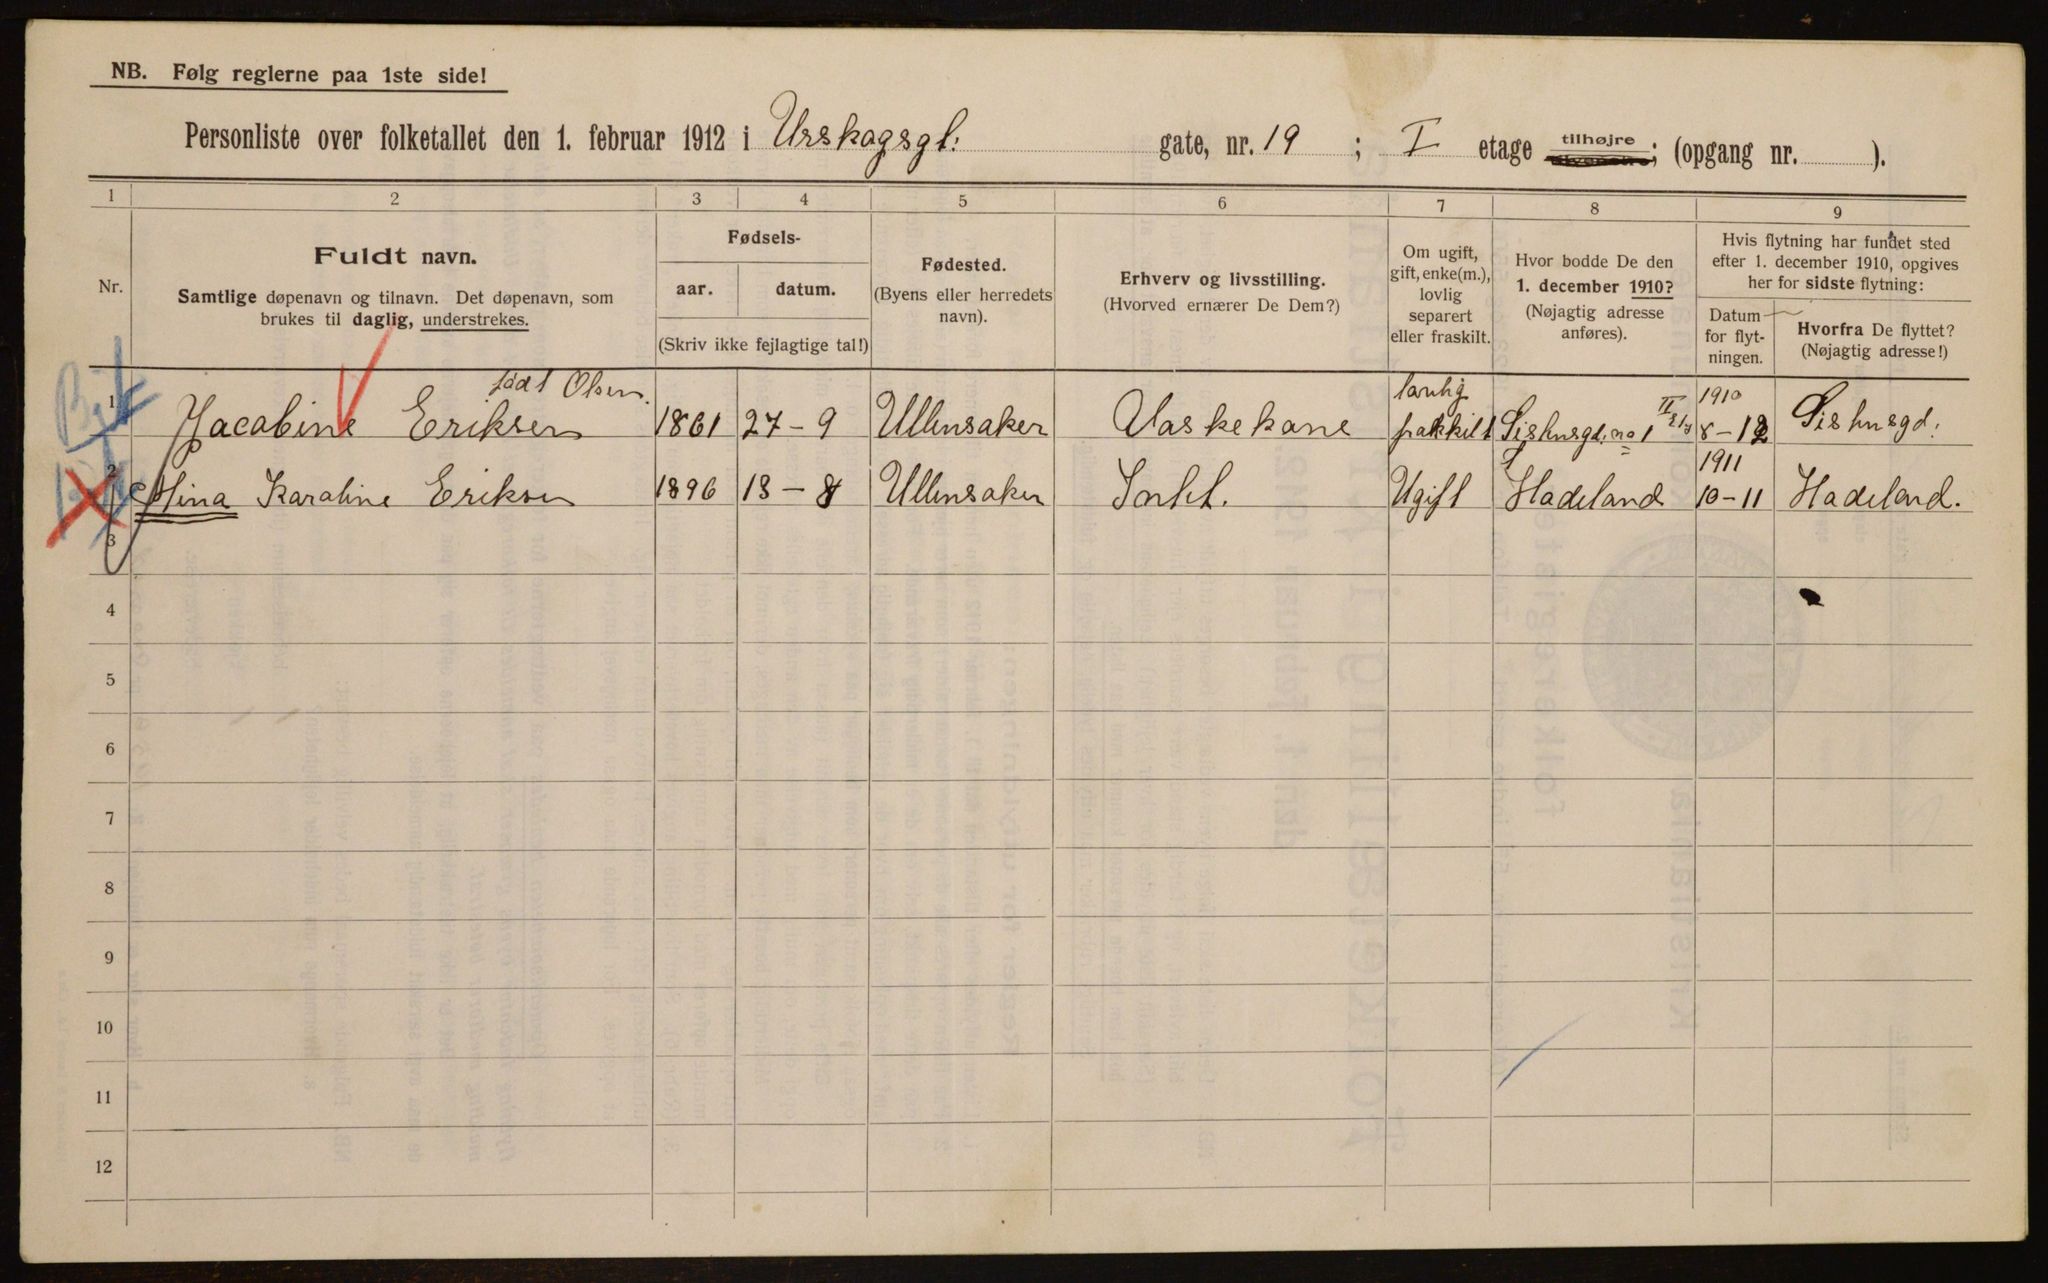 NB. Følg reglerne paa 1ste side!
Personliste over folketallet den 1. februar 1912 i Urskogsgt: gate, nr. 19 ; I etage tilhøjre ; (opgang nr. ).
1 2 3 4 5 6 7 8 9
Nr.
Fuldt navn.
Samtlige døpenavn og tilnavn. Det døpenavn, som
brukes til daglig, understrekes.
Fødsels-
aar. datum.
(Skriv ikke fejlagtige tal!)
Fødested.
(Byens eller herredets
navn).
Erhverv og livsstilling.
(Hvorved ernærer De Dem?)
Om ugift,
gift, enke(m.),
lovlig
separert
eller fraskilt.
Hvor bodde De den
1. december 1910?
(Nøjagtig adresse
anføres).
Hvis flytning har fundet sted
efter 1. december 1910, opgives
her for sidste flytning:
Datum
for flyt-
ningen.
Hvorfra De flyttet?
(Nøjagtig adresse!)
født Olsen.
1 Jacobine Eriksen 1861 27-9 Ullensaker Vaskekone lovlig fraskilt 1910 8-12
2 Mina Karoline Eriksen 1896 13-8 Ullensaker Ugift Hadeland 1911 10-11 Hadeland.
3
4
5
6
7
8
9
10
11
12